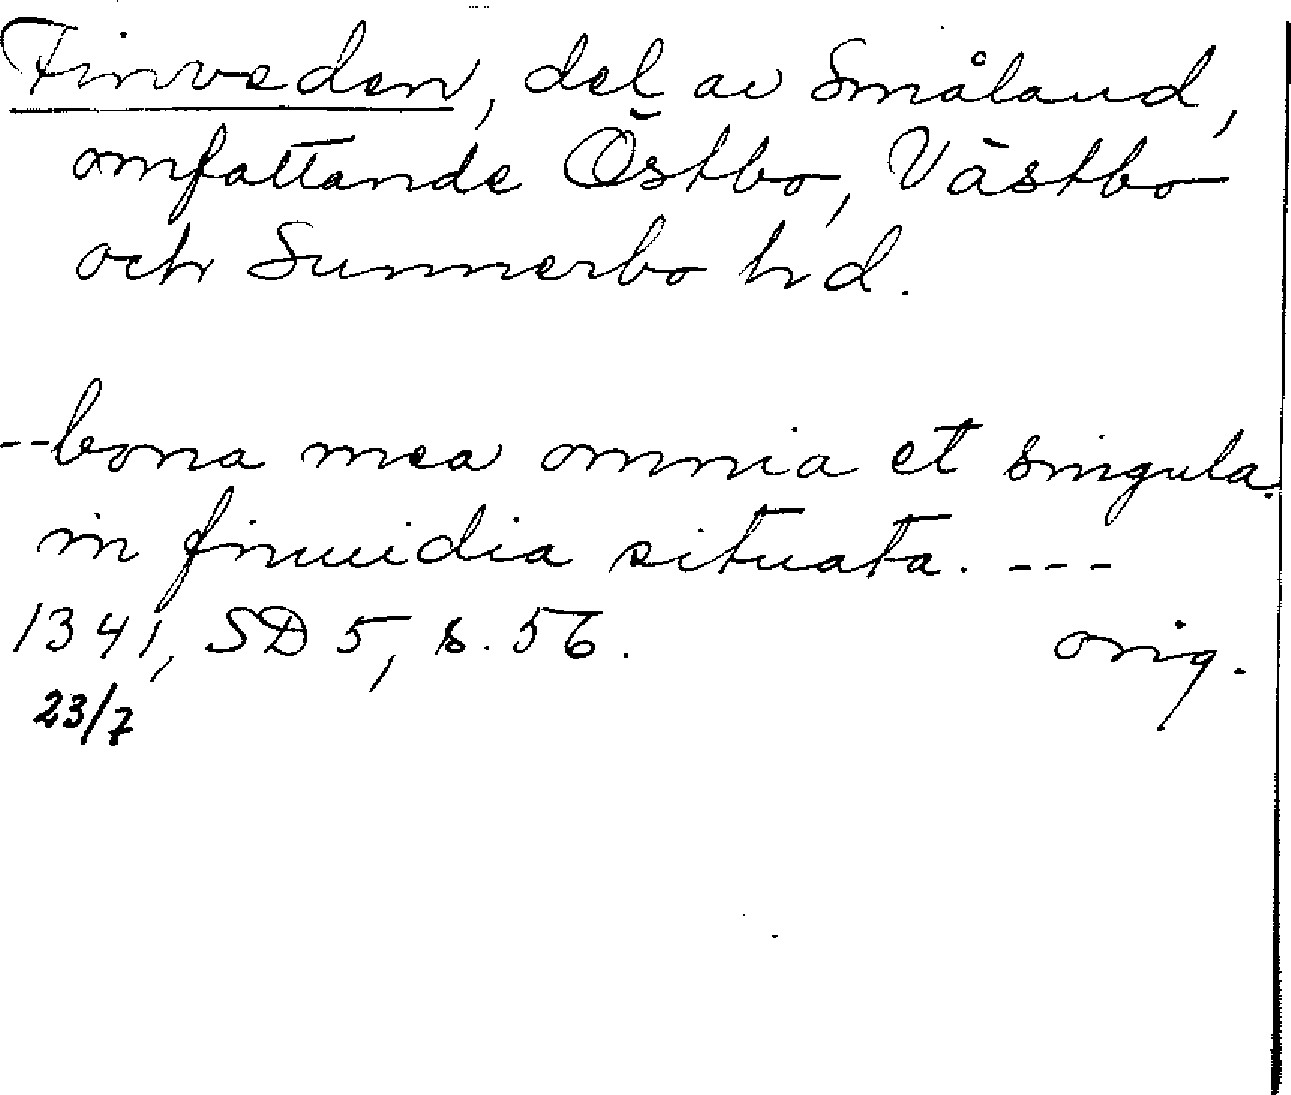 Finveden, del av Småland,
omfattande Östbo, Västbo
och Sunnerbo hd.
--bona mea omnia et singula
in finuidia situata. ---
1341, SD 5, s. 56. orig.
23/7